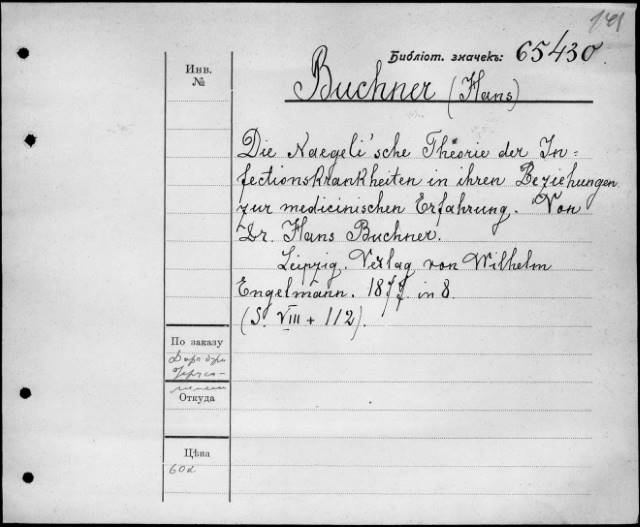 141
Библіот. значекъ: 65430.
Инв.
№
Buchner (Hans)
Die Naegeli'sche Theorie der In=
fectionskrankheiten in ihren Beziehungen
zur medicinischen Erfahrung. Von
Dr. Hans Buchner.
Leipzig. Verlag von Wilhelm
Engelmann. 1877. in 8.
(S. VIII + 112).
По заказу
Откуда
Цѣна
60к